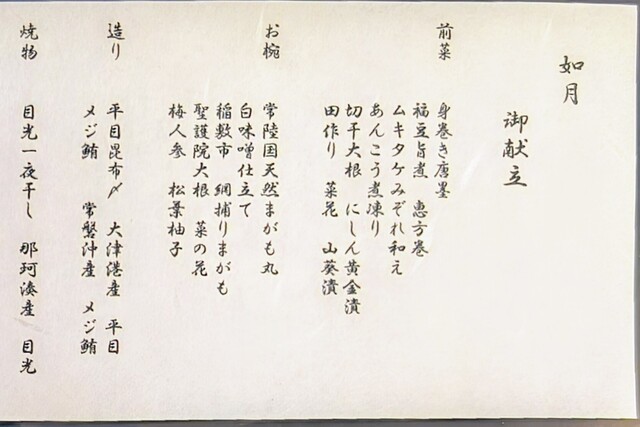 如月
御献立
前菜
身巻き唐墨
福豆旨煮 恵方巻
ムキタケみぞれ和え
あんこう煮凍り
切干大根 にしん黄金漬
田作り 菜花 山葵漬
お椀
常陸国天然まがも丸
白味噌仕立て
稲敷市 網捕りまがも
聖護院大根 菜の花
梅人参 松葉柚子
造り
平目昆布〆 大津港産 平目
メジ鮪 常磐沖産 メジ鮪
焼物
目光一夜干し 那珂湊産 目光